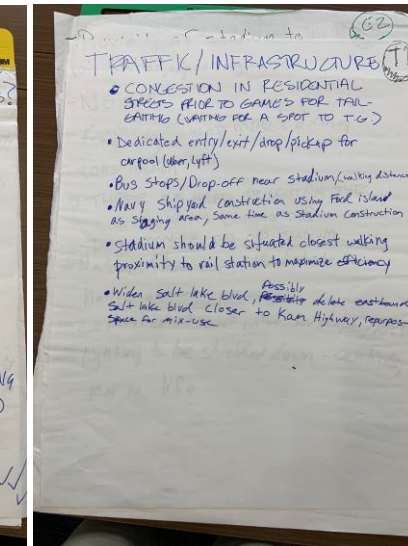 G2
TRAFFIC/INFRASTRUCTURE
• CONGESTION IN RESIDENTIAL
STREETS PRIOR TO GAMES FOR TAIL-
GATING (WAITING FOR A SPOT TO T.G)
• Dedicated entry/exit/drop/pickup for
carpool (uber, lyft)
• Bus Stops/Drop-off near stadium, (walking distance
• Navy Shipyard construction using Ford island
as staging area, same time as Stadium construction
• Stadium should be situated closest walking
proximity to rail station to maximize efficiency
• Widen Salt lake blvd, Possibly delete eastbound
Salt lake blvd closer to Kam Highway, repurpose
space for mix-use